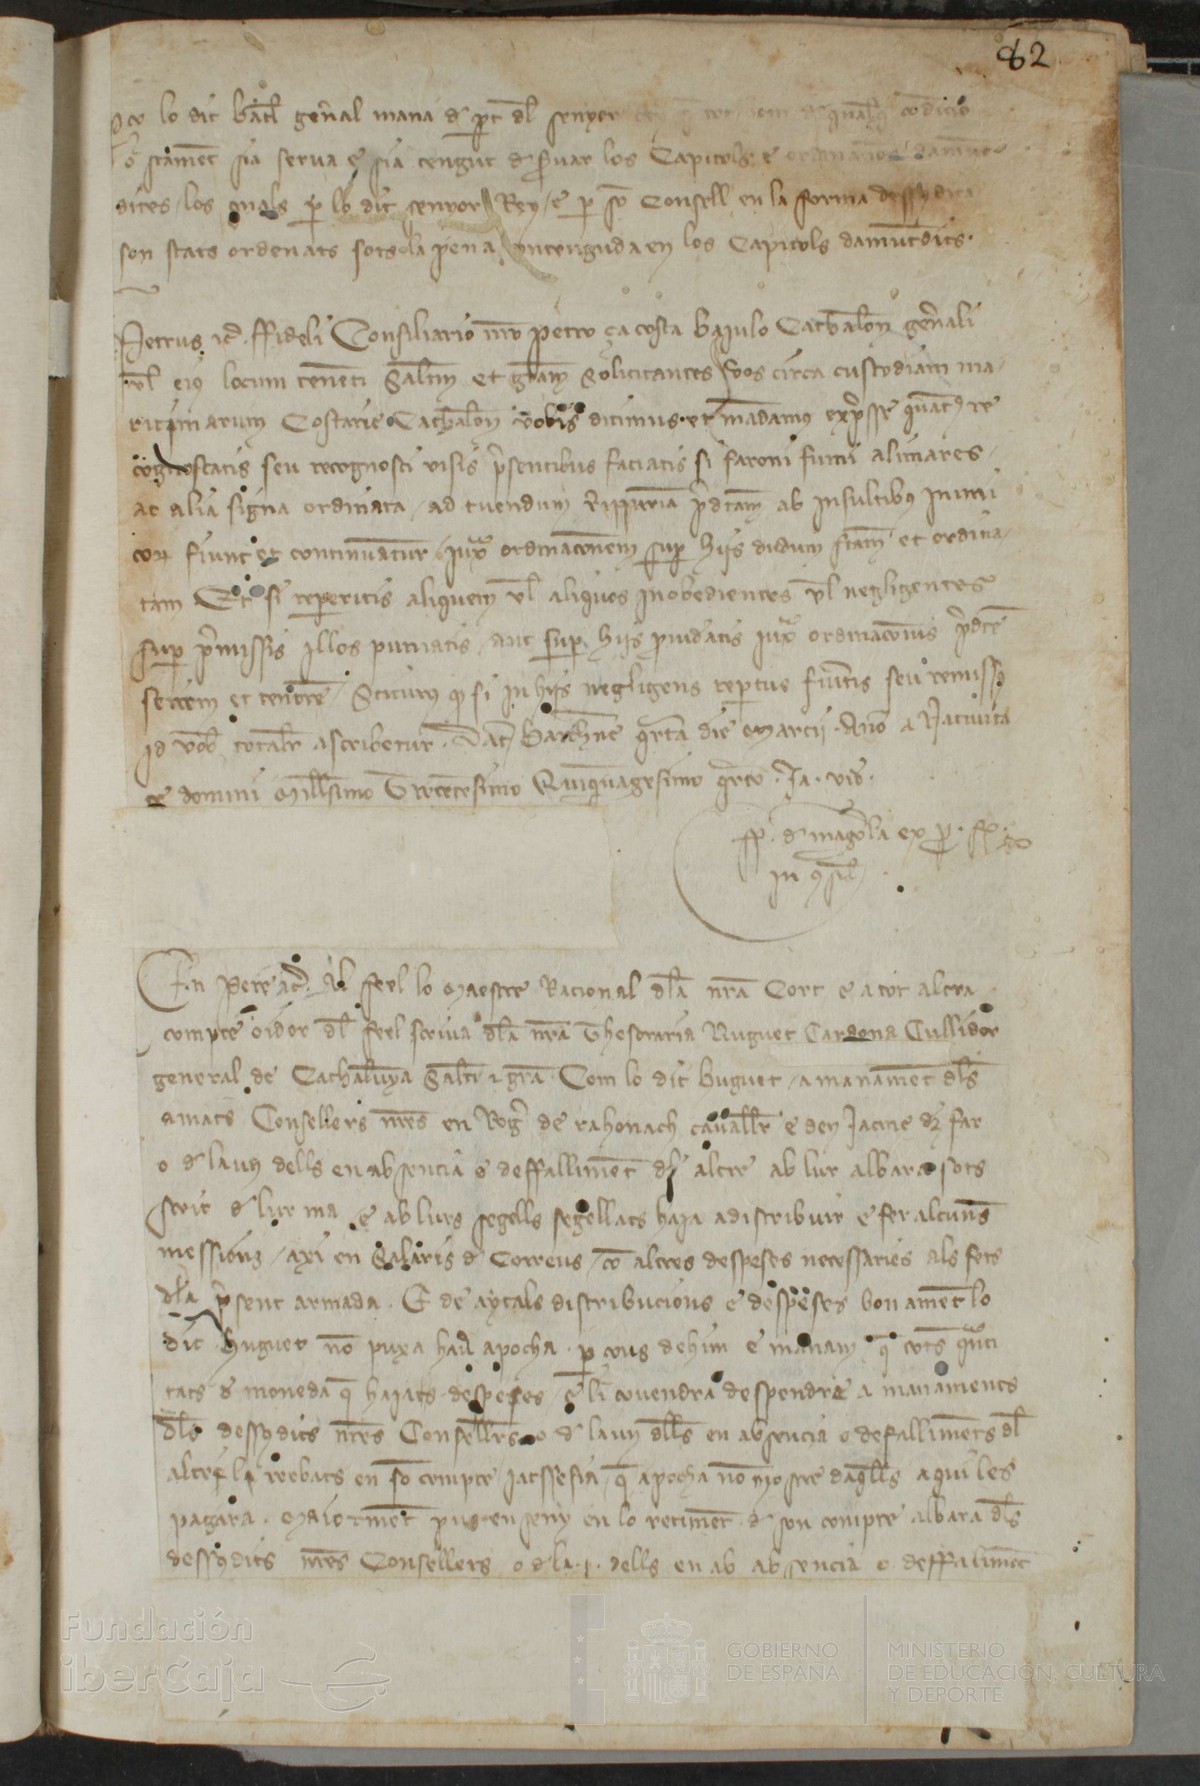 82
lo dit batl gen̄al mana d part dl senyor Rey
o stamēt sia serva e sia tengut d s̄var los Capitols e ordinacions damunt
dites, los quals p lo dit senyor Rey, e p sō Consell en la forma dessusdita
son stats ordenats sots la pena contenguda en los Capitols damūtdits.
Petrus &c. ffideli Consiliario nr̄o Petro ça costa baiulo Cathalōn gen̄ali
vl eiꝰ locum tenēti Saltm et grām Solicitantes vos circa custodiam ma
ritimarum Costarie Cathalōn vobis dicimus et mādamꝰ exp̄sse quatꝰ re
cognoscatis seu recognosci visis p̄sentibus faciatis si faroni fumi alimares
ac alia signa ordinata, ad tuendum Rippariā p̄dctam ab insultibꝰ inimi
cor fiunt et continuātur, iux ordinacōnem sup hiis dudum fctam et ordina
tam Et si reperitis aliquem vl aliquos inobedientes vl negligentes
sup p̄missis illos puniatis, aut sup hiis p̄uidatis iux ordinacōnis p̄dcte
seriem et tenorē, Scituri qd si in hiis negligens reptus fuitis seu remissꝰ
id vob totalr ascribetur. Dat Barchn̄e qrta die Marcii. Anō a Natiuita
te domini Millīmo Trecētesimo Quinquagesimo qrto. Ja. vid.
ff. d magla ex p.
in 9sil
En Pere &c. Al feel lo Maestre Racional dla nr̄a Cort e a tot altra
compte oidor dl feel scriua dla nr̄a Thesoraria Nuguet Cardona Cullidor
general de Cathalūya Salt & grā. Com lo dit huguet, a manamēt dls
amats Consellers nr̄es en Rog de rahonach cauallr e den Jacme dz far
o d la vn dells en absencia e deffallimēt dl altre ab lur albara sots
scrit d lur ma e ab lurs segells segellats haia a distribuir e fer alcunes
messions, axi en Salaris d Correus, cō altres despeses necessaries als fets
dla p̄sent armada. E de aytals distribucions e despeses bonamēt lo
dit huguet nō puxa hau apocha. p çous dehim e manam q tots quati
tats d moneda q haiats despeses, e li couendra despendre a manaments
dls dessusdits nr̄es Consellers o d la vn dlls en absencia o defallimēts dl
altre li reebats en sō compte iatssesia q apocha nō mostre daqlls a qui les
pagara. Maiormēt pus en seny en lo retimēt d son compte albara dls
dessusdits nr̄es Consellers o d la .i. dells en ab absencia o deffalimēt
Fundación
iberCaja
GOBIERNO
DE ESPAÑA
MINISTERIO
DE EDUCACIÓN, CULTURA
Y DEPORTE